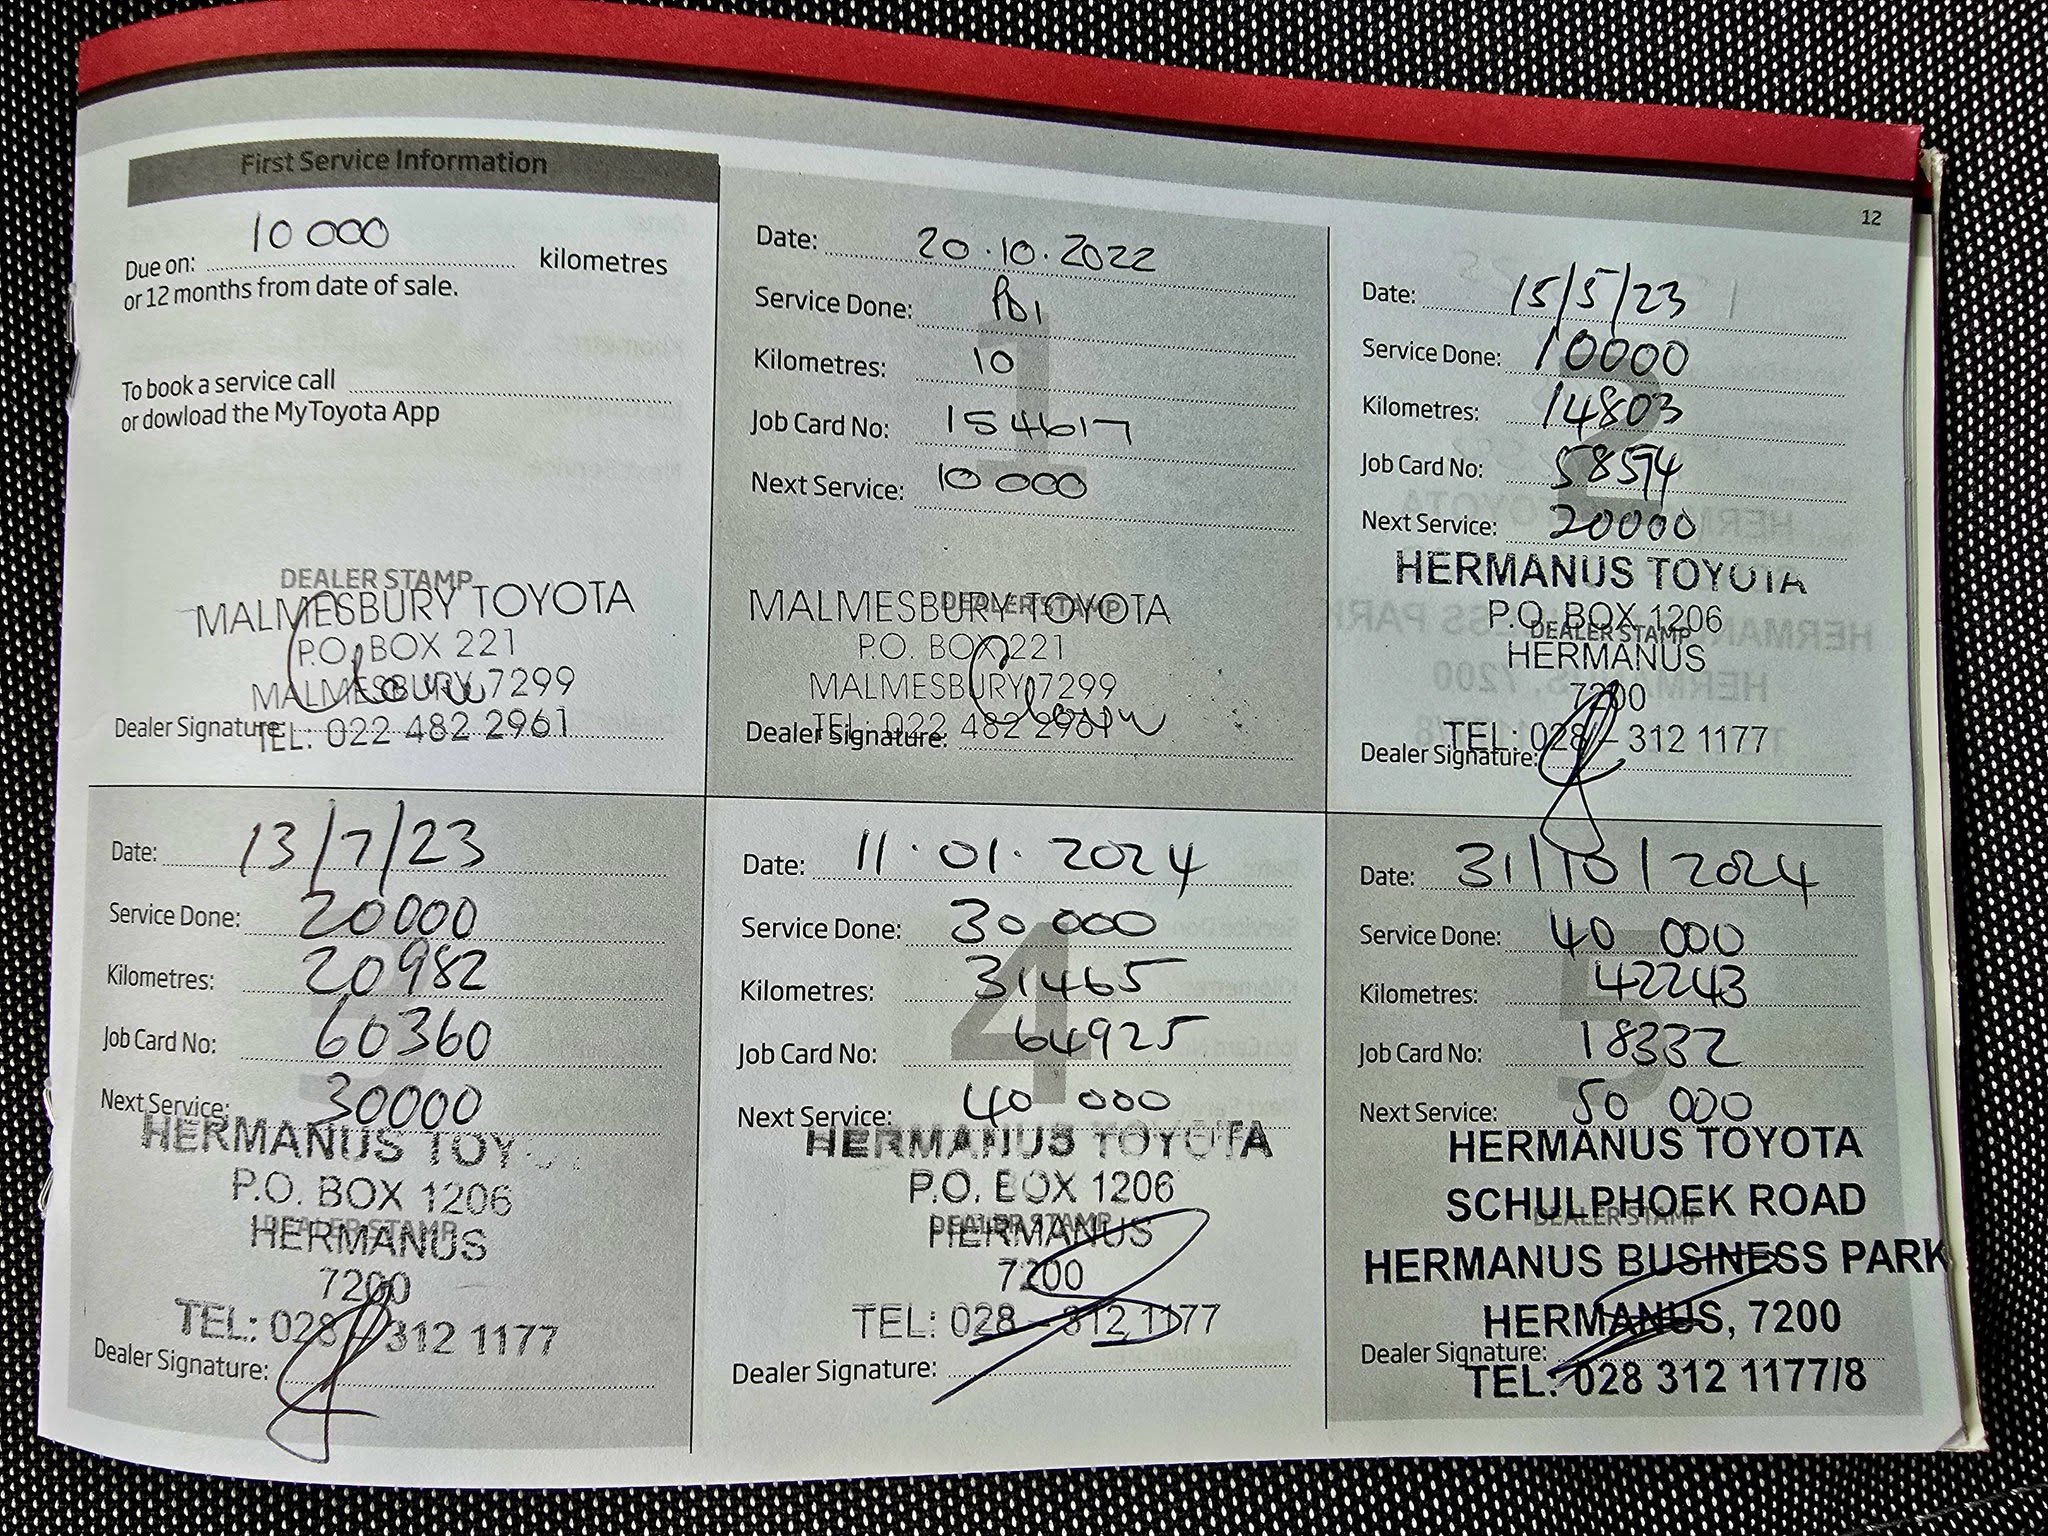 12
First Service Information
Due on: 10 000 kilometres
or 12 months from date of sale.
To book a service call
or dowload the MyToyota App
DEALER STAMP
MALMESBURY TOYOTA
P.O. BOX 221
MALMESBURY 7299
TEL: 022 482 2961
Dealer Signature:
1
Date: 20.10.2022
Service Done: PDI
Kilometres: 10
Job Card No: 154617
Next Service: 10 000
DEALER STAMP
MALMESBURY TOYOTA
P.O. BOX 221
MALMESBURY 7299
TEL: 022 482 2961
Dealer Signature:
2
Date: 15/5/23
Service Done: 10000
Kilometres: 14803
Job Card No: 58594
Next Service: 20000
HERMANUS TOYOTA
P.O. BOX 1206
DEALER STAMP
HERMANUS
7200
TEL: 028 - 312 1177
Dealer Signature:
3
Date: 13/7/23
Service Done: 20000
Kilometres: 20982
Job Card No: 60360
Next Service: 30000
HERMANUS TOY
P.O. BOX 1206
DEALER STAMP
HERMANUS
7200
TEL: 028 - 312 1177
Dealer Signature:
4
Date: 11.01.2024
Service Done: 30 000
Kilometres: 31465
Job Card No: 64925
Next Service: 40 000
HERMANUS TOYOTA
P.O. BOX 1206
DEALER STAMP
HERMANUS
7200
TEL: 028 - 312 1177
Dealer Signature:
5
Date: 31/10/2024
Service Done: 40 000
Kilometres: 42243
Job Card No: 18332
Next Service: 50 000
HERMANUS TOYOTA
SCHULPHOEK ROAD
DEALER STAMP
HERMANUS BUSINESS PARK
HERMANUS, 7200
Dealer Signature:
TEL: 028 312 1177/8